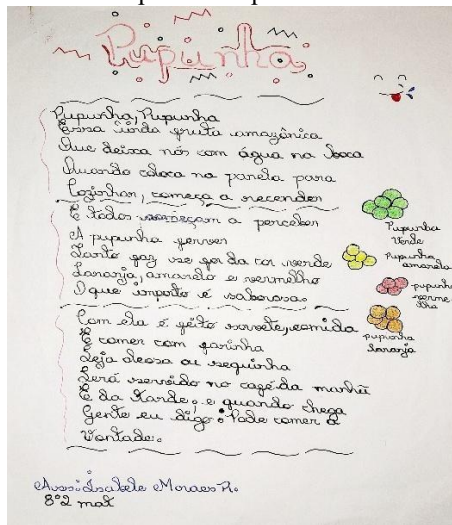 Pupunha
Pupunha, Pupunha
Essa linda fruta amazônica
Que deixa nós com água na boca
Quando coloca na panela para
Cozinhar, começa a recender
E todos começam a perceber
A pupunha ferver
Tanto faz se for da cor verde
Laranja, amarelo e vermelho
O que importa é saborosa.
Com ela é feito sorvete, comida
E comer com farinha
Seja oleosa ou sequinha
Será servido no café da manhã
E da tarde, e quando chega
Gente eu digo: Pode comer à
Vontade.
Pupunha
Verde
Pupunha
amarela
pupunha
verme
lha
pupunha
laranja
Ass: Isabele Moraes P.
8°2 mat